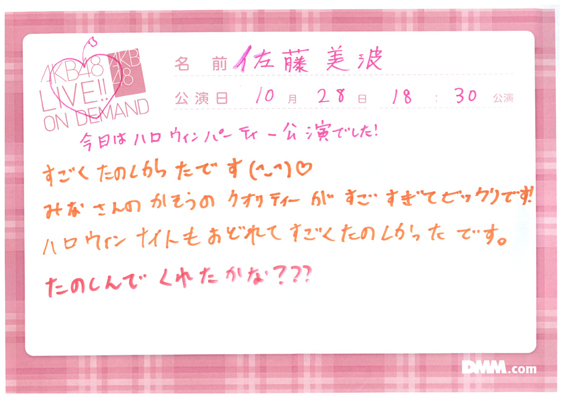 AKB48
LIVE!!
ON DEMAND
AKB
48
名前 佐藤美波
公演日 10月28日 18:30 公演
今日はハロウィンパーティー公演でした!
すごくたのしかったです(^_^)♡
みなさんのかそうのクオリティーがすごすぎてビックリです!
ハロウィンナイトもおどれてすごくたのしかったです。
たのしんでくれたかな???
DMM.com